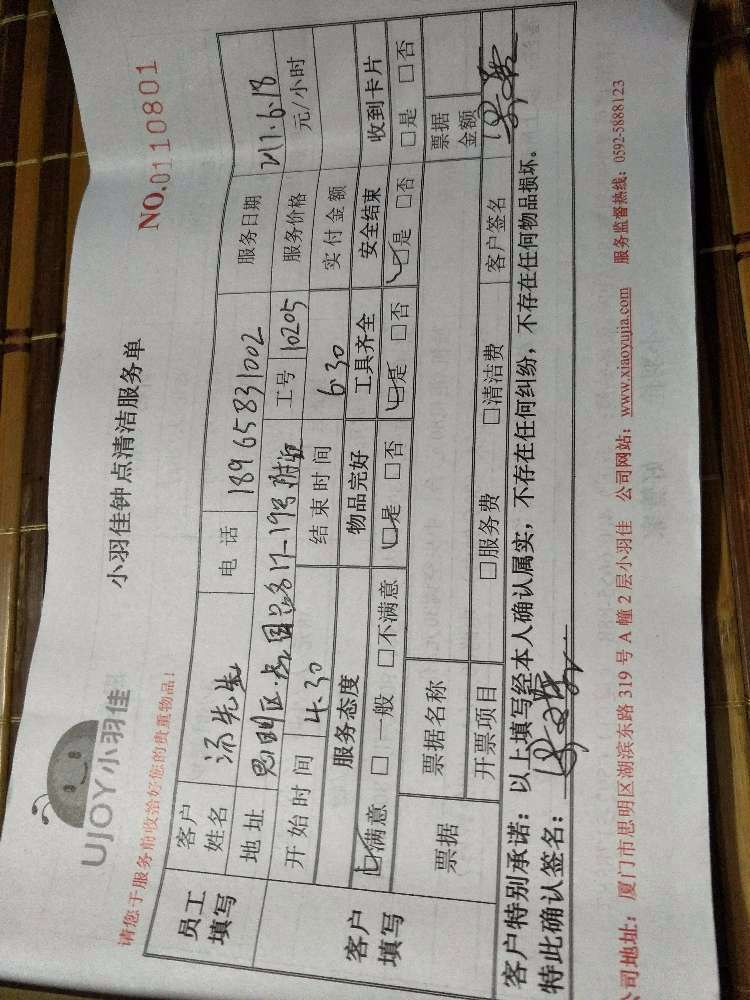 UJOY小羽佳
小羽佳钟点清洁服务单
NO.0110801
请您于服务前收洽好您的贵重物品!
员工填写
客户姓名 汤先生 电话 18965831002 服务日期 217.6.18
地址 思明区 17-19号 工号 10205 服务价格 元/小时
开始时间 4.30 结束时间 6.30 实付金额
客户填写
服务态度 物品完好 工具齐全 安全结束 收到卡片
☑满意 □一般 □不满意 ☑是 □否 ☑是 □否 ☑是 □否 □是 □否
票据 票据名称 票据金额
开票项目 □服务费 □清洁费 客户签名
客户特别承诺：以上填写经本人确认属实，不存在任何纠纷，不存在任何物品损坏。
特此确认签名：
公司地址：厦门市思明区湖滨东路319号A幢2层小羽佳 公司网站：www.xiaoyujia.com 服务监督热线：0592-5888123